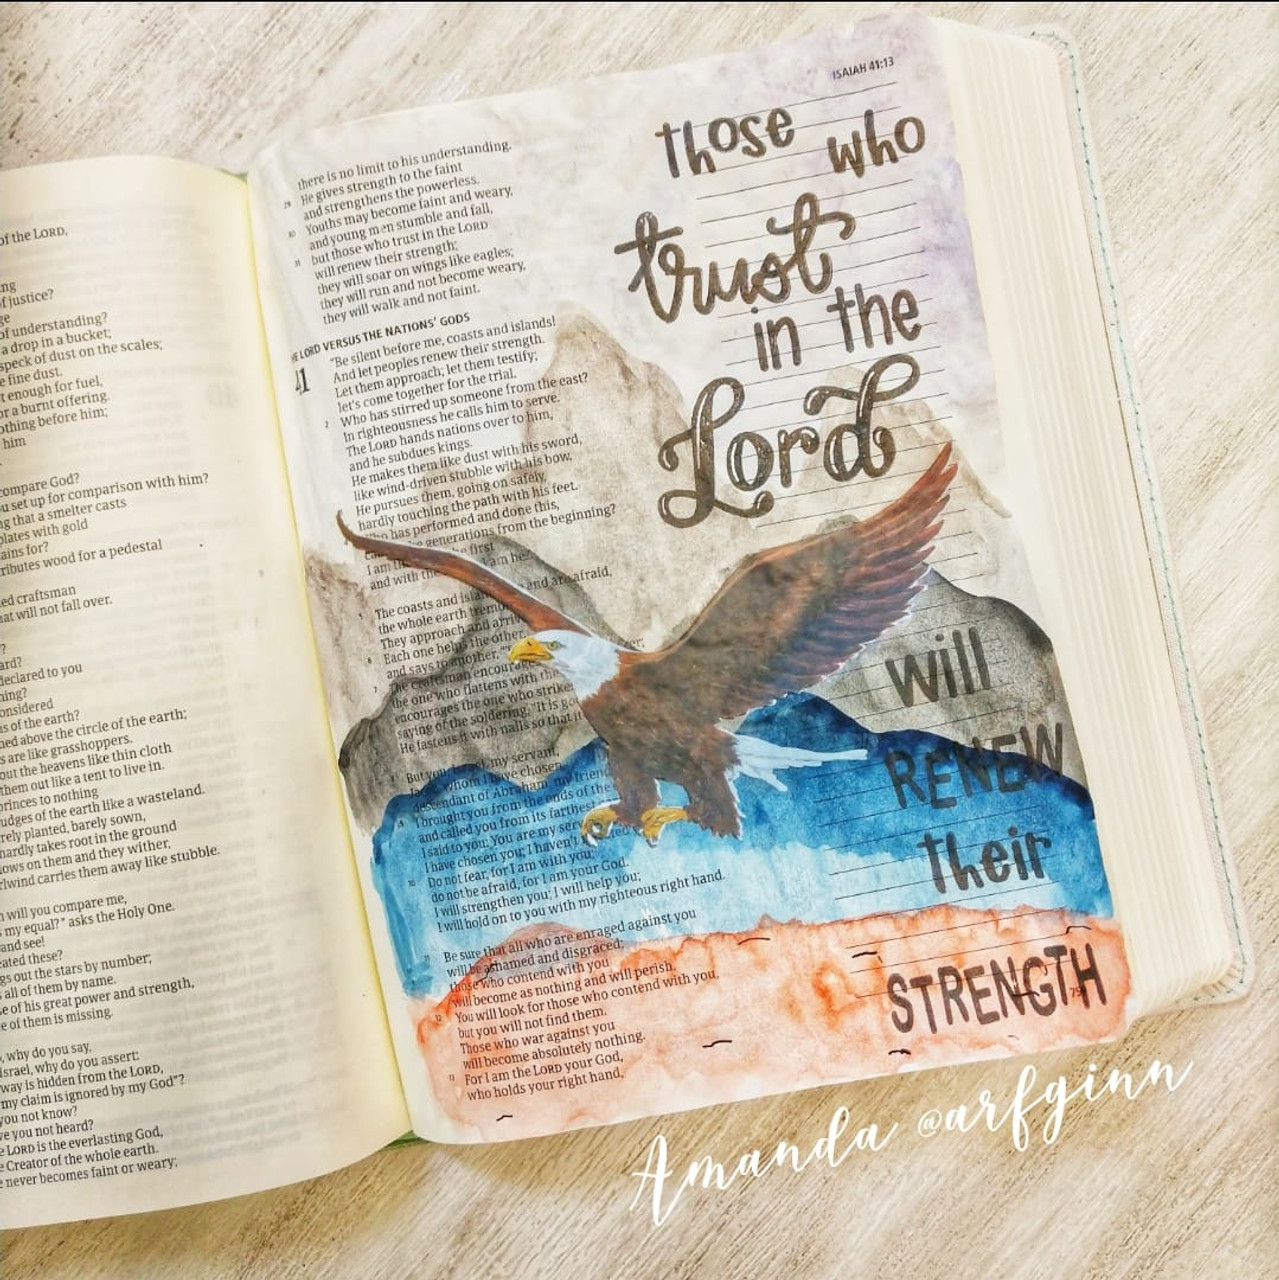 of the LORD,
ng
f justice?
ge
of understanding?
a drop in a bucket;
speck of dust on the scales;
e fine dust.
t enough for fuel,
or a burnt offering.
othing before him;
him
compare God?
u set up for comparison with him?
g that a smelter casts
plates with gold
ains for?
ributes wood for a pedestal
ed craftsman
at will not fall over.
?
ard?
declared to you
ning?
onsidered
s of the earth?
ned above the circle of the earth;
s are like grasshoppers.
out the heavens like thin cloth
them out like a tent to live in.
princes to nothing
udges of the earth like a wasteland.
rely planted, barely sown,
hardly takes root in the ground
lows on them and they wither,
rlwind carries them away like stubble.
n will you compare me,
s my equal?" asks the Holy One.
and see!
eated these?
gs out the stars by number;
s all of them by name.
se of his great power and strength,
e of them is missing.
, why do you say,
Israel, why do you assert:
way is hidden from the LORD,
my claim is ignored by my God"?
you not know?
ve you not heard?
e LORD is the everlasting God,
e Creator of the whole earth.
e never becomes faint or weary;
there is no limit to his understanding.
29 He gives strength to the faint
and strengthens the powerless.
30 Youths may become faint and weary,
and young men stumble and fall,
31 but those who trust in the LORD
will renew their strength;
they will soar on wings like eagles;
they will run and not become weary,
they will walk and not faint.
HE LORD VERSUS THE NATIONS' GODS
41 "Be silent before me, coasts and islands!
And let peoples renew their strength.
Let them approach; let them testify;
let's come together for the trial.
2 Who has stirred up someone from the east?
In righteousness he calls him to serve.
The LORD hands nations over to him,
and he subdues kings.
He makes them like dust with his sword,
like wind-driven stubble with his bow.
He pursues them, going on safely,
hardly touching the path with his feet.
Who has performed and done this,
generations from the beginning?
I am the first
and with the I am he.
5 The coasts and islands and are afraid,
the whole earth
They approach and arrive
6 Each one helps the other,
and says to another,
7 The craftsman encourages
the one who flattens with the
encourages the one who strikes
saying of the soldering, "It is
He fastens it with nails so that it
8 But you my servant,
whom I have chosen,
descendant of Abraham, my friend
9 I brought you from the ends of the
and called you from its farthest
I said to you: You are my
I have chosen you; I haven't
10 Do not fear, for I am with you;
do not be afraid, for I am your God.
I will strengthen you; I will help you;
I will hold on to you with my righteous right hand.
11 Be sure that all who are enraged against you
will be ashamed and disgraced;
those who contend with you
will become as nothing and will perish.
12 You will look for those who contend with you,
but you will not find them.
Those who war against you
will become absolutely nothing.
13 For I am the LORD your God,
who holds your right hand,
ISAIAH 41:13
those who
trust
in the
Lord
will
RENEW
their
STRENGTH
Amanda @arfginn